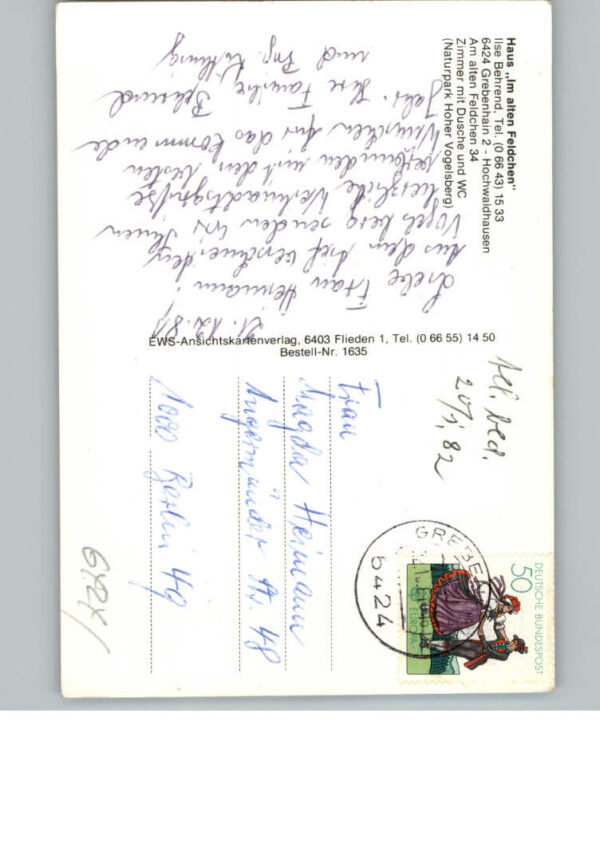 Haus „Im alten Feldchen"
Ilse Behrend, Tel. (0 66 43) 15 33
6424 Grebenhain 2 - Hochwaldhausen
Am alten Feldchen 34
Zimmer mit Dusche und WC
(Naturpark Hoher Vogelsberg)
21.12.81
Liebe Frau Heimann!
Aus dem tief verschneiten
Vogelsberg senden wir Ihnen
herzliche Weihnachtsgrüße
verbunden mit den besten
Wünschen für das kommende
Jahr. Ihre Familie Behrend
und
EWS-Ansichtskartenverlag, 6403 Flieden 1, Tel. (0 66 55) 14 50
Bestell-Nr. 1635
20/1.82
Frau
Magda Heimann
Angermünder 48
1000 Berlin 49
GREBEN
6424
50
DEUTSCHE BUNDESPOST
EUROPA